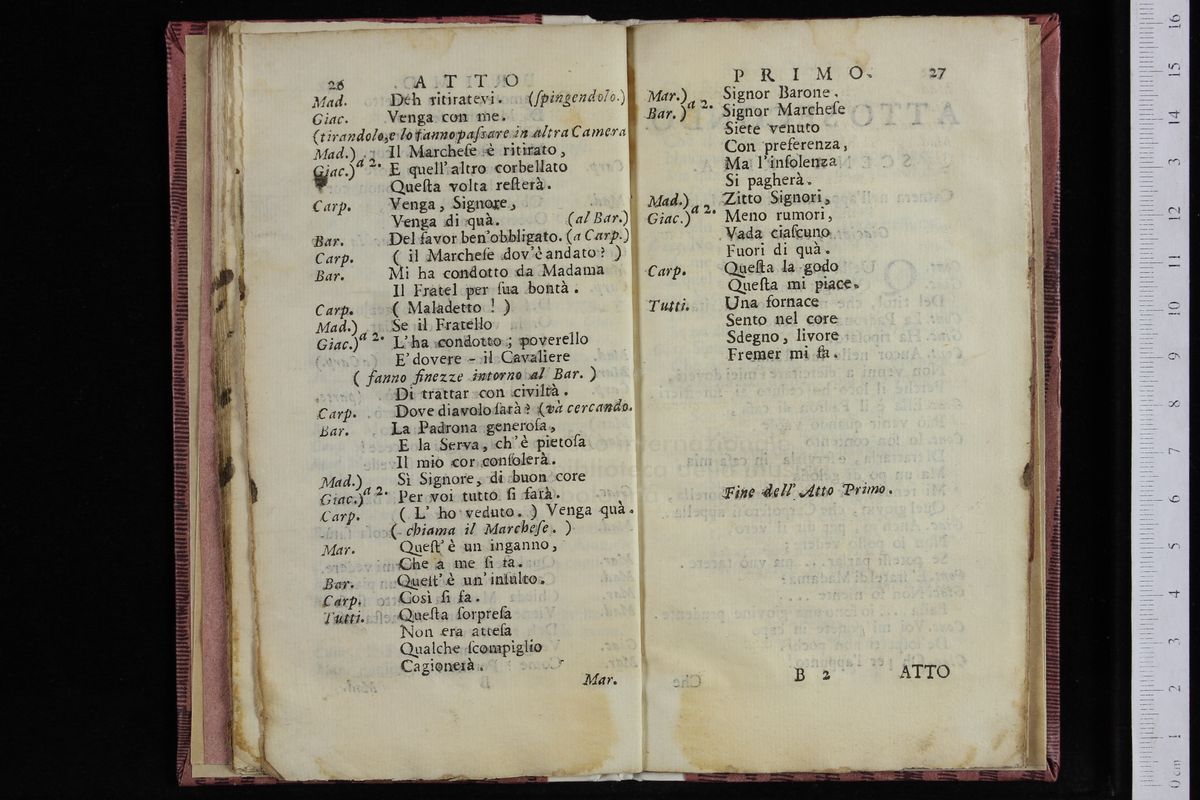 26 ATTO
Mad. Deh ritiratevi. (ſpingendolo.)
Giac. Venga con me.
(tirandolo, e lo fanno paſsare in altra Camera
Mad.) Il Marcheſe è ritirato,
Giac.) a 2. E quell'altro corbellato
Queſta volta reſterà.
Carp. Venga, Signore,
Venga di quà. (al Bar.)
Bar. Del favor ben'obbligato. (a Carp.)
Carp. ( il Marcheſe dov'è andato? )
Bar. Mi ha condotto da Madama
Il Fratel per ſua bontà.
Carp. ( Maladetto ! )
Mad.) Se il Fratello
Giac.) a 2. L'ha condotto; poverello
E' dovere - il Cavaliere
( fanno finezze intorno al Bar. )
Di trattar con civiltà.
Carp. Dove diavolo ſarà? (và cercando.
Bar. La Padrona generoſa,
E la Serva, ch'è pietoſa
Il mio cor conſolerà.
Mad.) Sì Signore, di buon core
Giac.) a 2. Per voi tutto ſi farà.
Carp. ( L' ho veduto. ) Venga quà.
( chiama il Marcheſe. )
Mar. Queſt'è un inganno,
Che a me ſi fa.
Bar. Queſt'è un'inſulto.
Carp. Così ſi fa.
Tutti. Queſta ſorpreſa
Non era atteſa
Qualche ſcompiglio
Cagionerà.
Mar.
PRIMO. 27
Mar.) Signor Barone.
Bar.) a 2. Signor Marcheſe
Siete venuto
Con preferenza,
Ma l'inſolenza
Si pagherà.
Mad.) Zitto Signori,
Giac.) a 2. Meno rumori,
Vada ciaſcuno
Fuori di quà.
Carp. Queſta la godo
Queſta mi piace.
Tutti. Una fornace
Sento nel core
Sdegno, livore
Fremer mi fa.
Fine dell' Atto Primo.
B 2 ATTO
0 cm 1 2 3 4 5 6 7 8 9 10 11 12 13 14 15 16